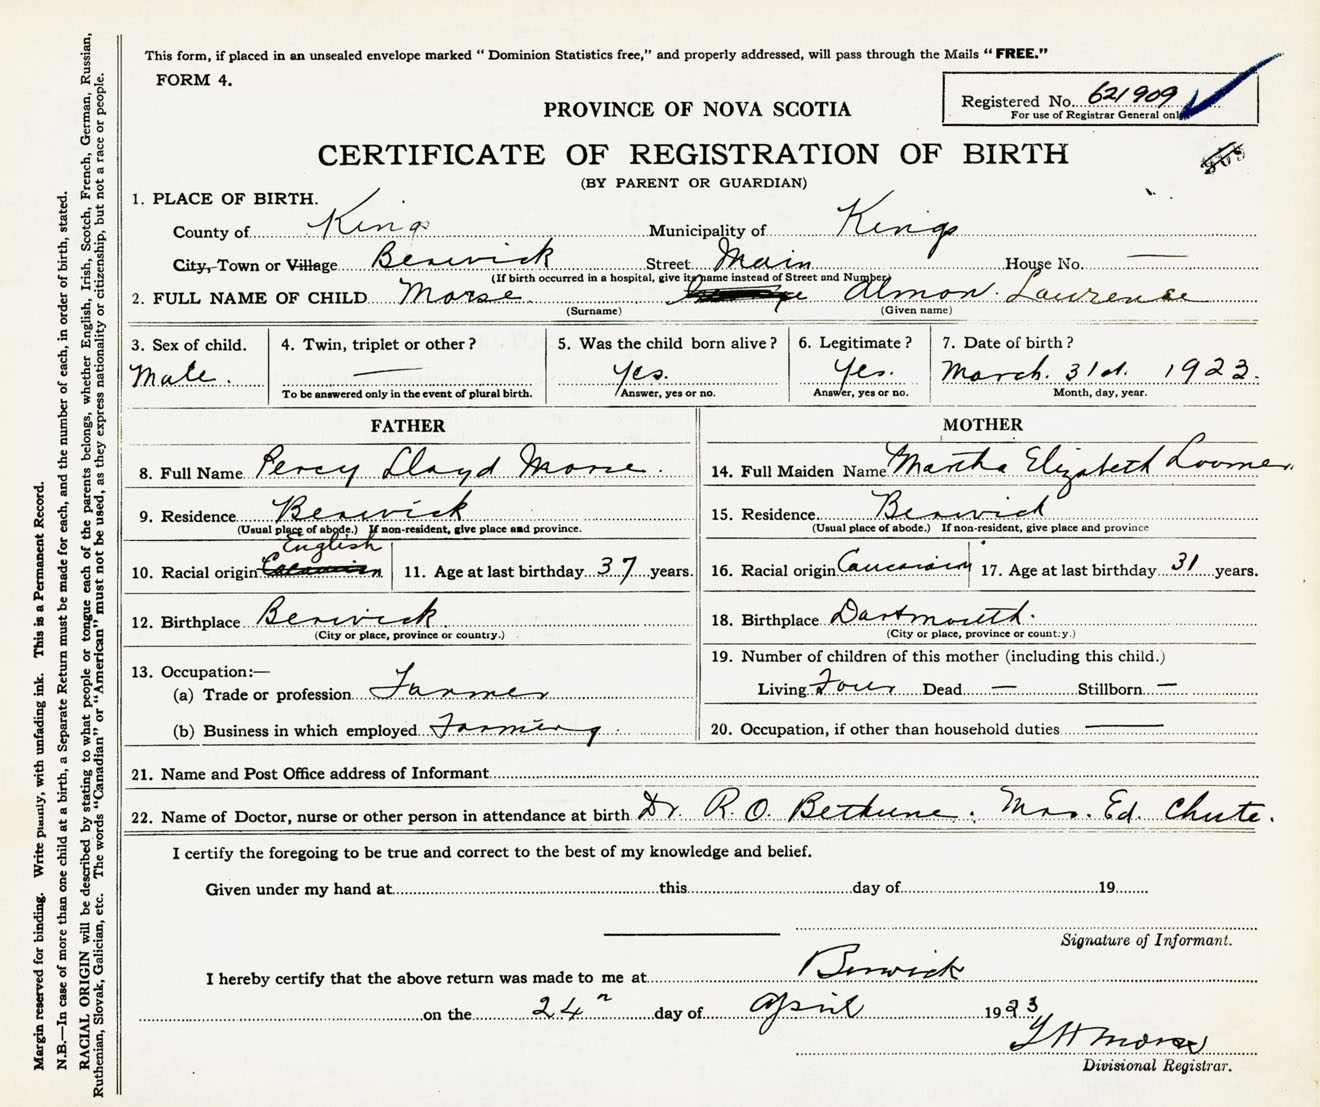 This form, if placed in an unsealed envelope marked “ Dominion Statistics free,” and properly addressed, will pass through the Mails “ FREE.”
FORM 4.
Registered No. 621909
For use of Registrar General only
PROVINCE OF NOVA SCOTIA
CERTIFICATE OF REGISTRATION OF BIRTH
(BY PARENT OR GUARDIAN)
1. PLACE OF BIRTH.
County of Kings Municipality of Kings
City, Town or Village Berwick Street Main House No. —
(If birth occurred in a hospital, give its name instead of Street and Number)
2. FULL NAME OF CHILD Morse Almon Laurense
(Surname) (Given name)
3. Sex of child. 4. Twin, triplet or other ? 5. Was the child born alive ? 6. Legitimate ? 7. Date of birth ?
Male. — Yes. Yes. March. 31st. 1923.
To be answered only in the event of plural birth. Answer, yes or no. Answer, yes or no. Month, day, year.
FATHER
8. Full Name Percy Lloyd Morse.
9. Residence Berwick
(Usual place of abode.) If non-resident, give place and province.
English
10. Racial origin 11. Age at last birthday 37 years.
12. Birthplace Berwick.
(City or place, province or country.)
13. Occupation:—
(a) Trade or profession Farmer
(b) Business in which employed Farming.
MOTHER
14. Full Maiden Name Martha Elizabeth Loomer.
15. Residence Berwick
(Usual place of abode.) If non-resident, give place and province
16. Racial origin Caucasian 17. Age at last birthday 31 years.
18. Birthplace Dartmouth.
(City or place, province or country.)
19. Number of children of this mother (including this child.)
Living Four Dead — Stillborn —
20. Occupation, if other than household duties —
21. Name and Post Office address of Informant
22. Name of Doctor, nurse or other person in attendance at birth Dr. R. O. Bethune. Mrs. Ed. Chute.
I certify the foregoing to be true and correct to the best of my knowledge and belief.
Given under my hand at this day of 19
Signature of Informant.
I hereby certify that the above return was made to me at Berwick
on the 24 day of April 1923
Morse
Divisional Registrar.
Margin reserved for binding. Write plainly, with unfading ink. This is a Permanent Record.
N.B.—In case of more than one child at a birth, a Separate Return must be made for each, and the number of each, in order of birth, stated.
RACIAL ORIGIN will be described by stating to what people or tongue each of the parents belongs, whether English, Irish, Scotch, French, German, Russian,
Ruthenian, Slovak, Galician, etc. The words “Canadian” or “American” must not be used, as they express nationality or citizenship, but not a race or people.